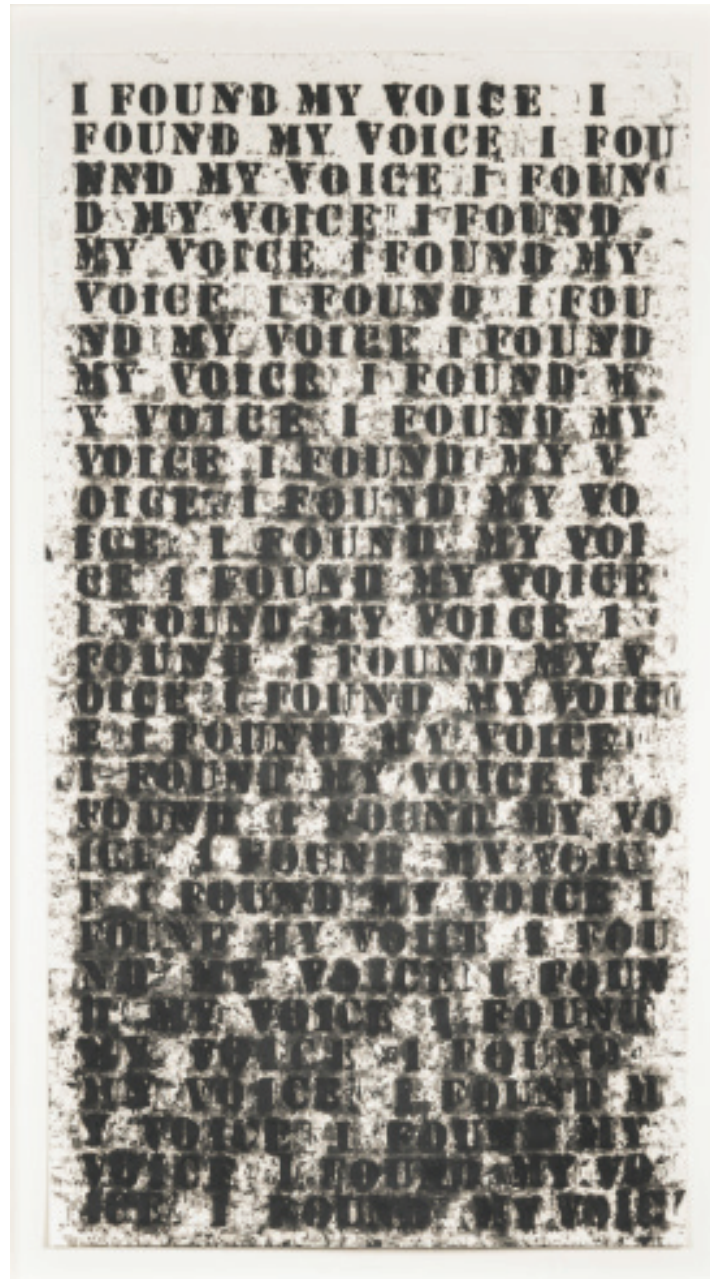 I FOUND MY VOICE I
FOUND MY VOICE I FOU
NND MY VOICE I FOUN
D MY VOICE I FOUND
MY VOICE I FOUND MY
VOICE I FOUND I FOU
ND MY VOICE I FOUND
MY VOICE I FOUND M
Y VOICE I FOUND MY
VOICE I FOUND MY V
OICE I FOUND MY VO
ICE I FOUND MY VOI
CE I FOUND MY VOICE
I FOUND MY VOICE I
FOUND I FOUND MY V
OICE I FOUND MY VOIC
E I FOUND MY VOICE
I FOUND MY VOICE I
FOUND I FOUND MY VO
ICE I FOUND MY VOIC
E I FOUND MY VOICE I
FOUND MY VOICE I FOU
ND MY VOICE I FOUN
D MY VOICE I FOUND
MY VOICE I FOUND
MY VOICE I FOUND M
Y VOICE I FOUND MY
VOICE I FOUND MY VO
ICE I FOUND MY VOICE